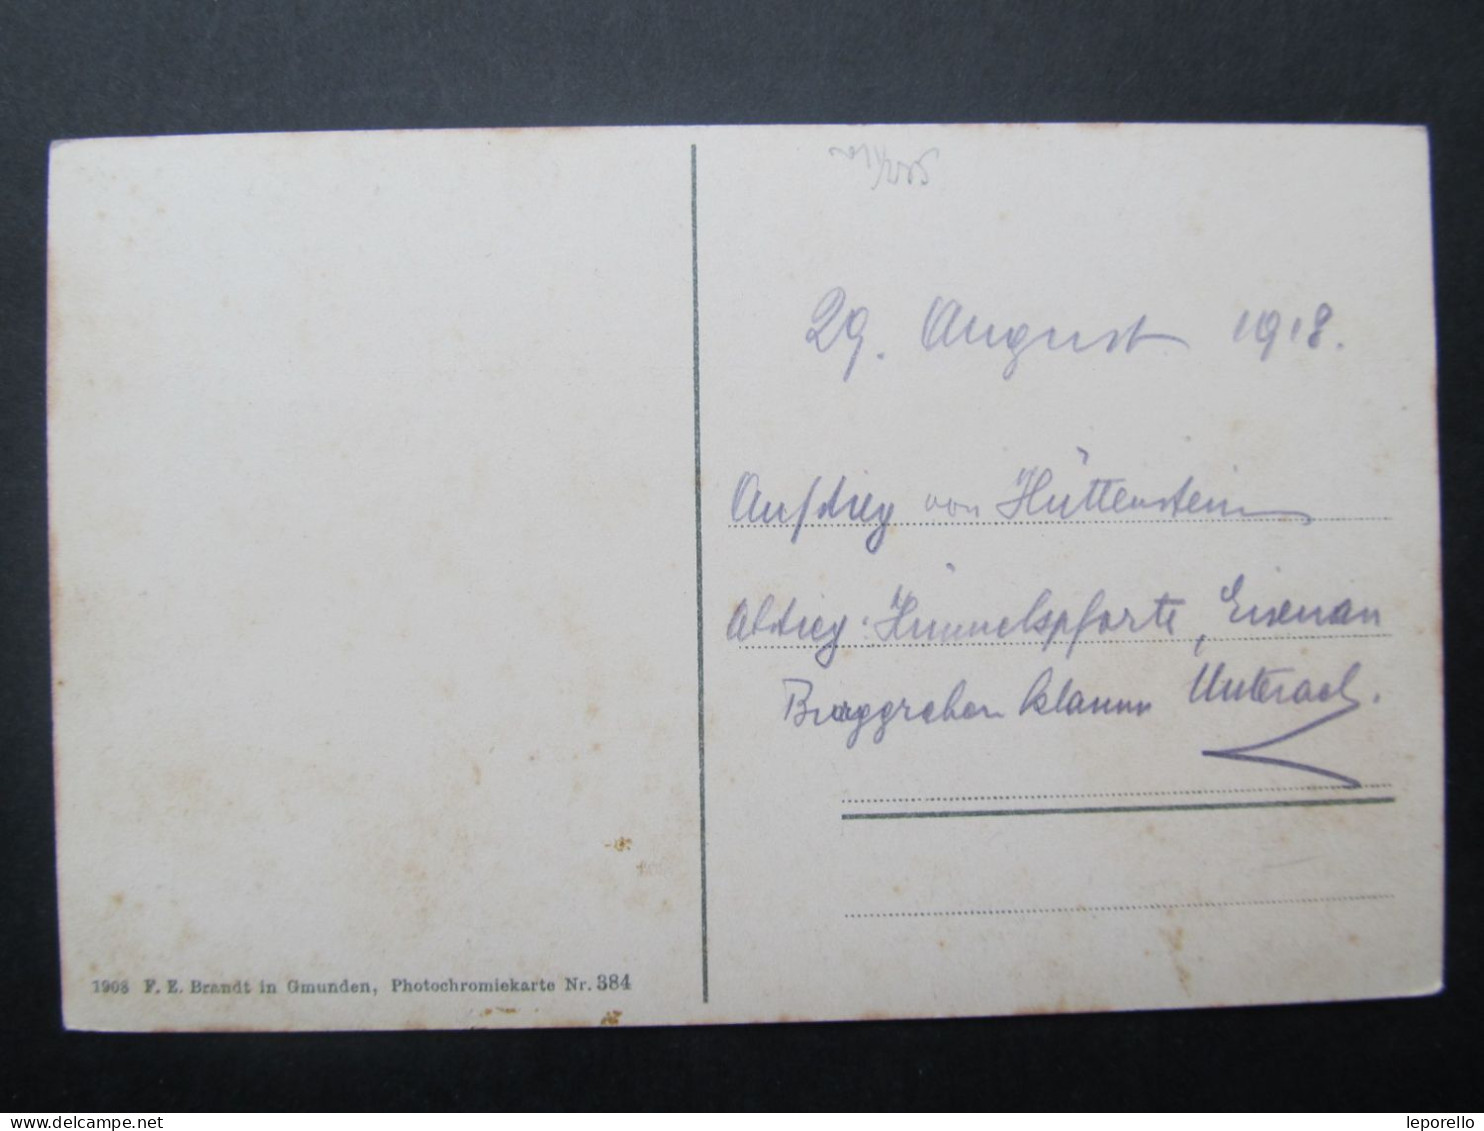 29. August 1918.
Aufstieg von Hüttenstein
Abstieg: Himmelspforte, Eisenau
Burggraben klamm Unterach.
1908 F. E. Brandt in Gmunden, Photochromiekarte Nr. 384
delcampe.net
leporello